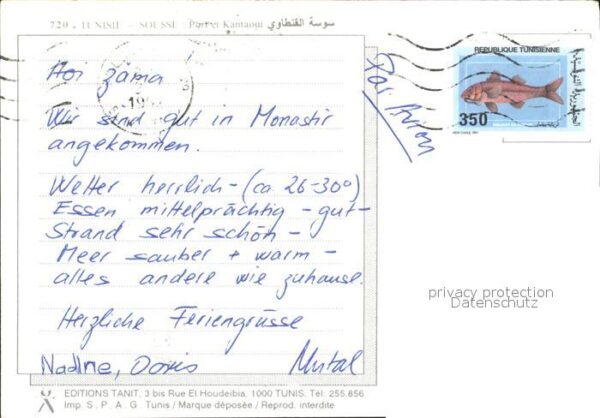 720 - TUNISIE - SOUSSE : Port el Kantaoui سوسة القنطاوي
Hoi zäma
Wir sind gut in Monastir
angekommen.
Wetter herrlich - (ca 26-30°)
Essen mittelprächtig - gut -
Strand sehr schön -
Meer sauber + warm -
alles andere wie zuhause.
Herzliche Feriengrüsse
Nadine, Doris
Par Avion
REPUBLIQUE TUNISIENNE
الجمهورية التونسية
350
privacy protection
Datenschutz
EDITIONS TANIT, 3 bis Rue El Houdeibia, 1000 TUNIS. Tél: 255.856
Imp. S. P. A. G. Tunis / Marque déposée / Reprod. interdite